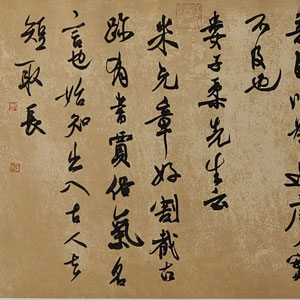 不及也
娄子柔先生云
米元章好割截古
迹有书贾俗气名
言也始知出入古人去
短取长